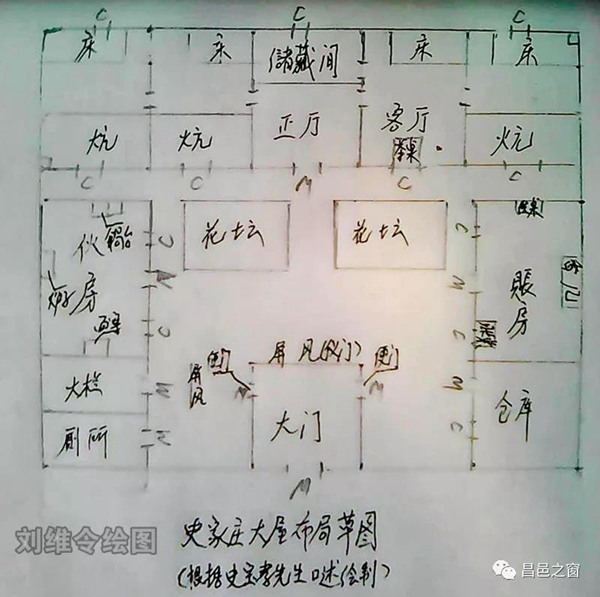 C C C
床 床 儲藏间 床 床
炕 炕 正厅 客厅 炕
C C M C C
花坛 花坛
伙房
锅台
C
M
C
账房
C
M
C
M
C
屏风(仪门)
屏风
M M
大门
M
大栏 M
厕所 M
仓库
史家庄大屋布局草图
(根据史宝孝先生口述绘制)
刘维令绘图
昌邑之窗